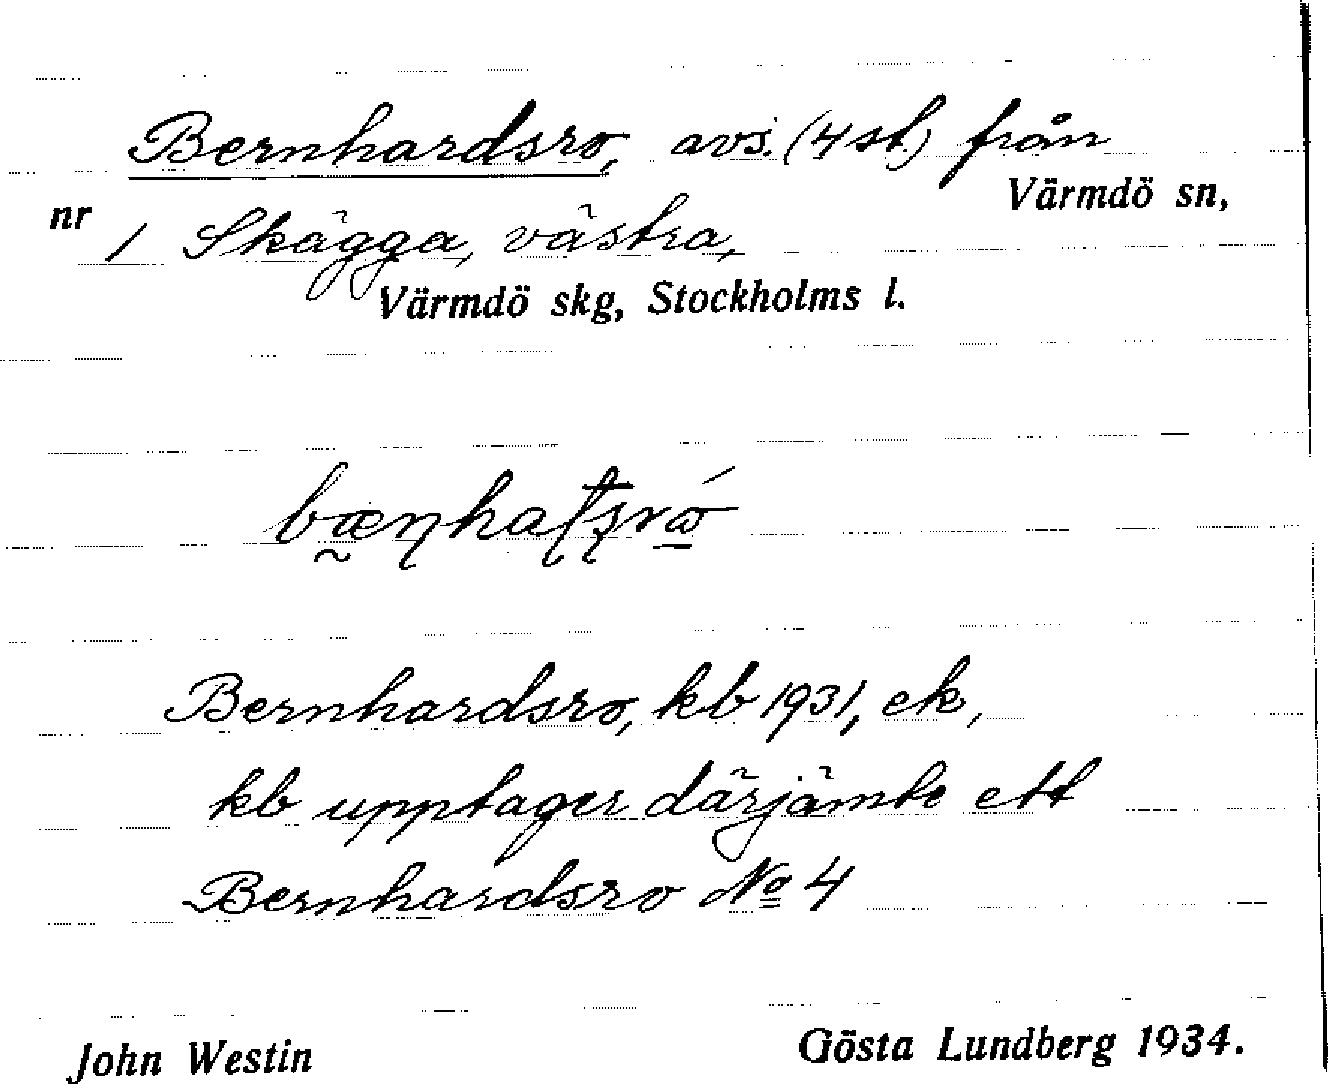 Bernhardsro, avs. (4 st.) från
Värmdö sn,
nr 1 Skägga, västra,
Värmdö skg, Stockholms l.
Bernhardsro, kb 1931, ek,
kb upptager därjämte ett
Bernhardsro No 4
John Westin
Gösta Lundberg 1934.